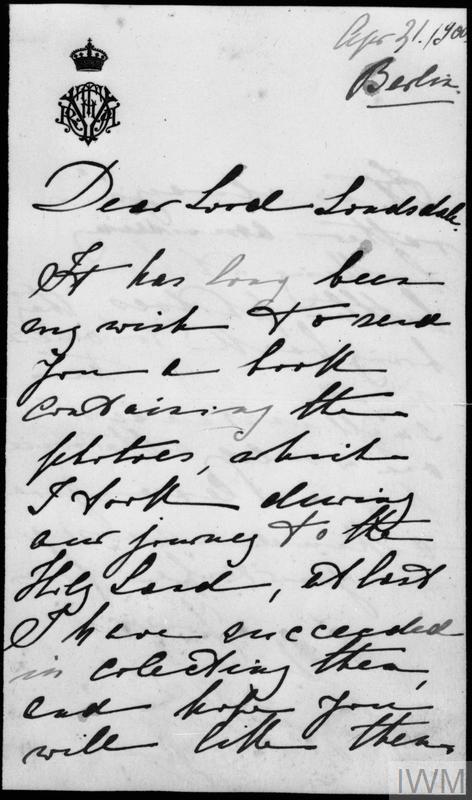 Apr 21. 1900
Berlin.
Dear Lord Londsdale.
It has long been
my wish to send
you a book
containing the
photoes, which
I took during
our journey to the
Holy Land, at last
I have succeeded
in colecting them,
and hope you
will like them
IWM